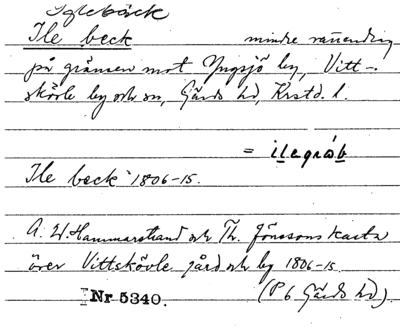 Iglebäck
Ile beck mindre vattendrag
på gränsen mot Yngsjö by, Vitt-
skövle by och sn, Gärds hd, Krstd. l.
= ilegráb
Ile beck 1806-15.
A. W. Hammarstrand och Th. Jönssons karta
över Vittskövle gård och by 1806-15
Nr 5340. (P 6 Gärds hd).